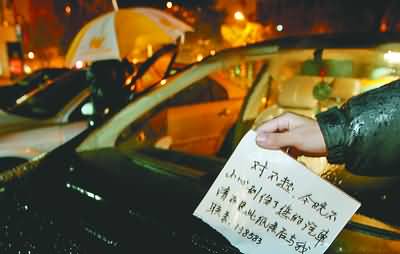 对不起，今晚不
小心刮伤了您的汽车
请不见此纸条后与我
联系 138583